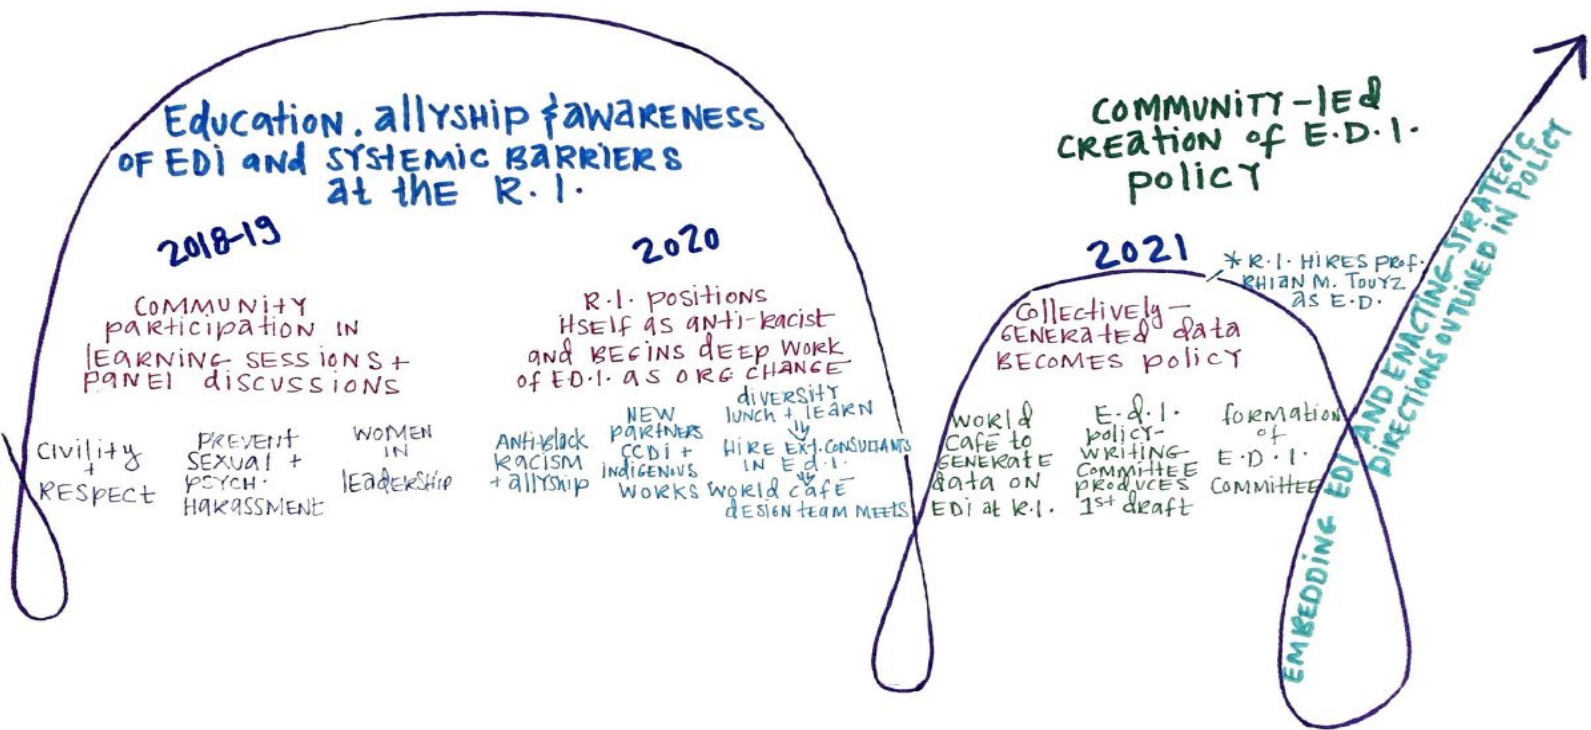 Education, allyship & awareness
of EDI and systemic barriers
at the R.I.
2018-19
community
participation in
learning sessions +
panel discussions
civility
+
respect
prevent
sexual +
psych.
harassment
women
in
leadership
2020
R.I. positions
itself as anti-racist
and begins deep work
of E.D.I. as org change
Anti-black
racism
+ allyship
new
partners
CCDI +
Indigenous
works
diversity
lunch + learn
hire ext. consultants
in E.d.i.
world café
design team meets
community-led
creation of E.D.I.
policy
2021
* R.I. hires Prof.
Rhian M. Touyz
as E.D.
Collectively-
generated data
becomes policy
world
café to
generate
data on
EDI at R.I.
E.d.i.
policy-
writing
committee
produces
1st draft
formation
of
E.D.I.
committee
EMBEDDING EDI AND ENACTING STRATEGIC
DIRECTIONS OUTLINED IN POLICY